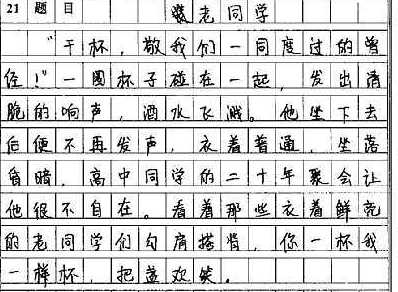 21 题目 老同学
“干杯，敬我们一同度过的曾
经！”一圈杯子碰在一起，发出清
脆的响声，酒水飞溅。他坐下去
后便不再发声，衣着普通，坐落
昏暗，高中同学的二十年聚会让
他很不自在。看着那些衣着鲜亮
的老同学们勾肩搭背，你一杯我
一杯，把盏欢笑。